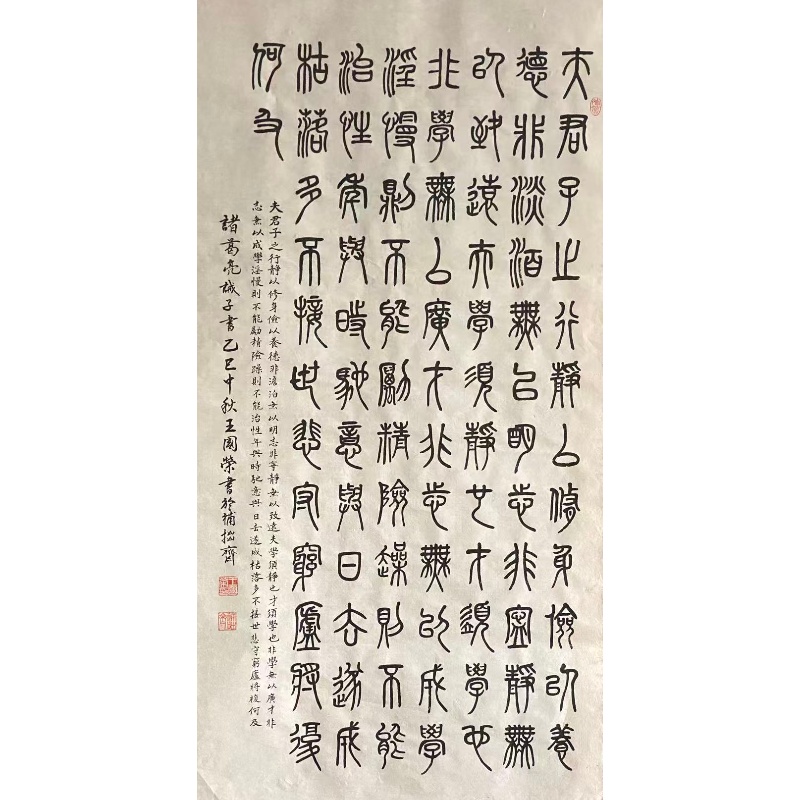 夫君子之行靜以修身儉以養
德非淡泊無以明志非寧靜無
以致遠夫學須靜也才須學也
非學無以廣才非志無以成學
淫慢則不能勵精險躁則不能
治性年與時馳意與日去遂成
枯落多不接世悲守窮廬將復
何及
夫君子之行靜以修身儉以養德非澹泊無以明志非寧靜無以致遠夫學須靜也才須學也非學無以廣才非
志無以成學淫慢則不能勵精險躁則不能治性年與時馳意與日去遂成枯落多不接世悲守窮廬將復何及
諸葛亮誡子書乙巳中秋王國榮書於補拙齋